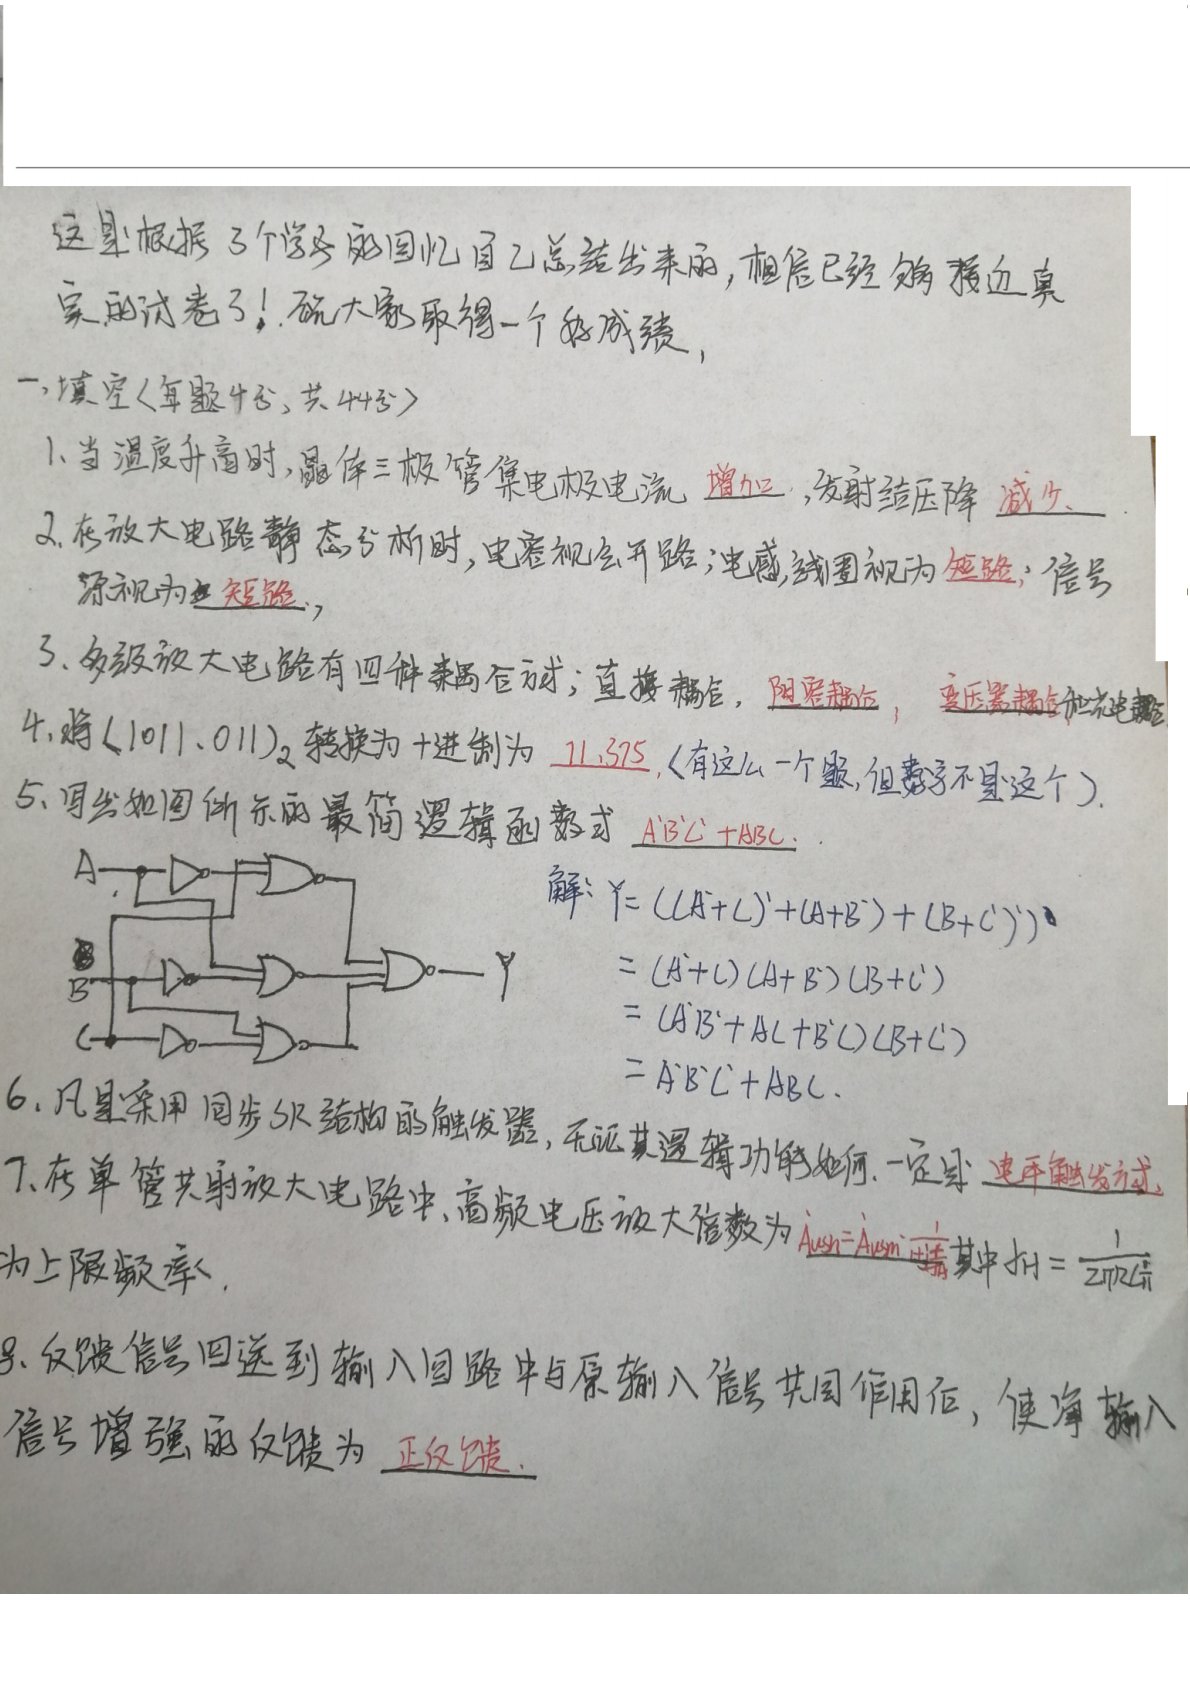 这是根据3个学长的回忆自己总结出来的,相信已经够接近真
实的试卷了!.祝大家取得一个好成绩,
一,填空〈每题4分,共44分〉
1、当温度升高时,晶体三极管集电极电流 增加,发射结压降 减少、
2、在放大电路静态分析时,电容视为开路;电感,线圈视为短路;信号
源视为短路,
3、多级放大电路有四种耦合方式;直接耦合,阻容耦合,变压器耦合和光电耦合
4、将(1011、011)₂转换为十进制为 11.375,(有这么一个题,但数字不是这个).
5、写出如图所示的最简逻辑函数式 A'B'C'+ABC.
A
解: Y=((A'+C)'+(A+B')'+(B+C')')'
B
Y
=(A'+C)(A+B')(B+C')
=(A'B'+AC+B'C)(B+C')
C
=A'B'C'+ABC.
6、凡是采用同步SR结构的触发器,无论其逻辑功能如何.一定是 电平触发方式,
7、在单管共射放大电路中、高频电压放大倍数为 Ȧush=Ȧusm· 其中fH=
为上限频率.
8、反馈信号回送到输入回路中与原输入信号共同作用后,使净输入
信号增强的反馈为 正反馈.